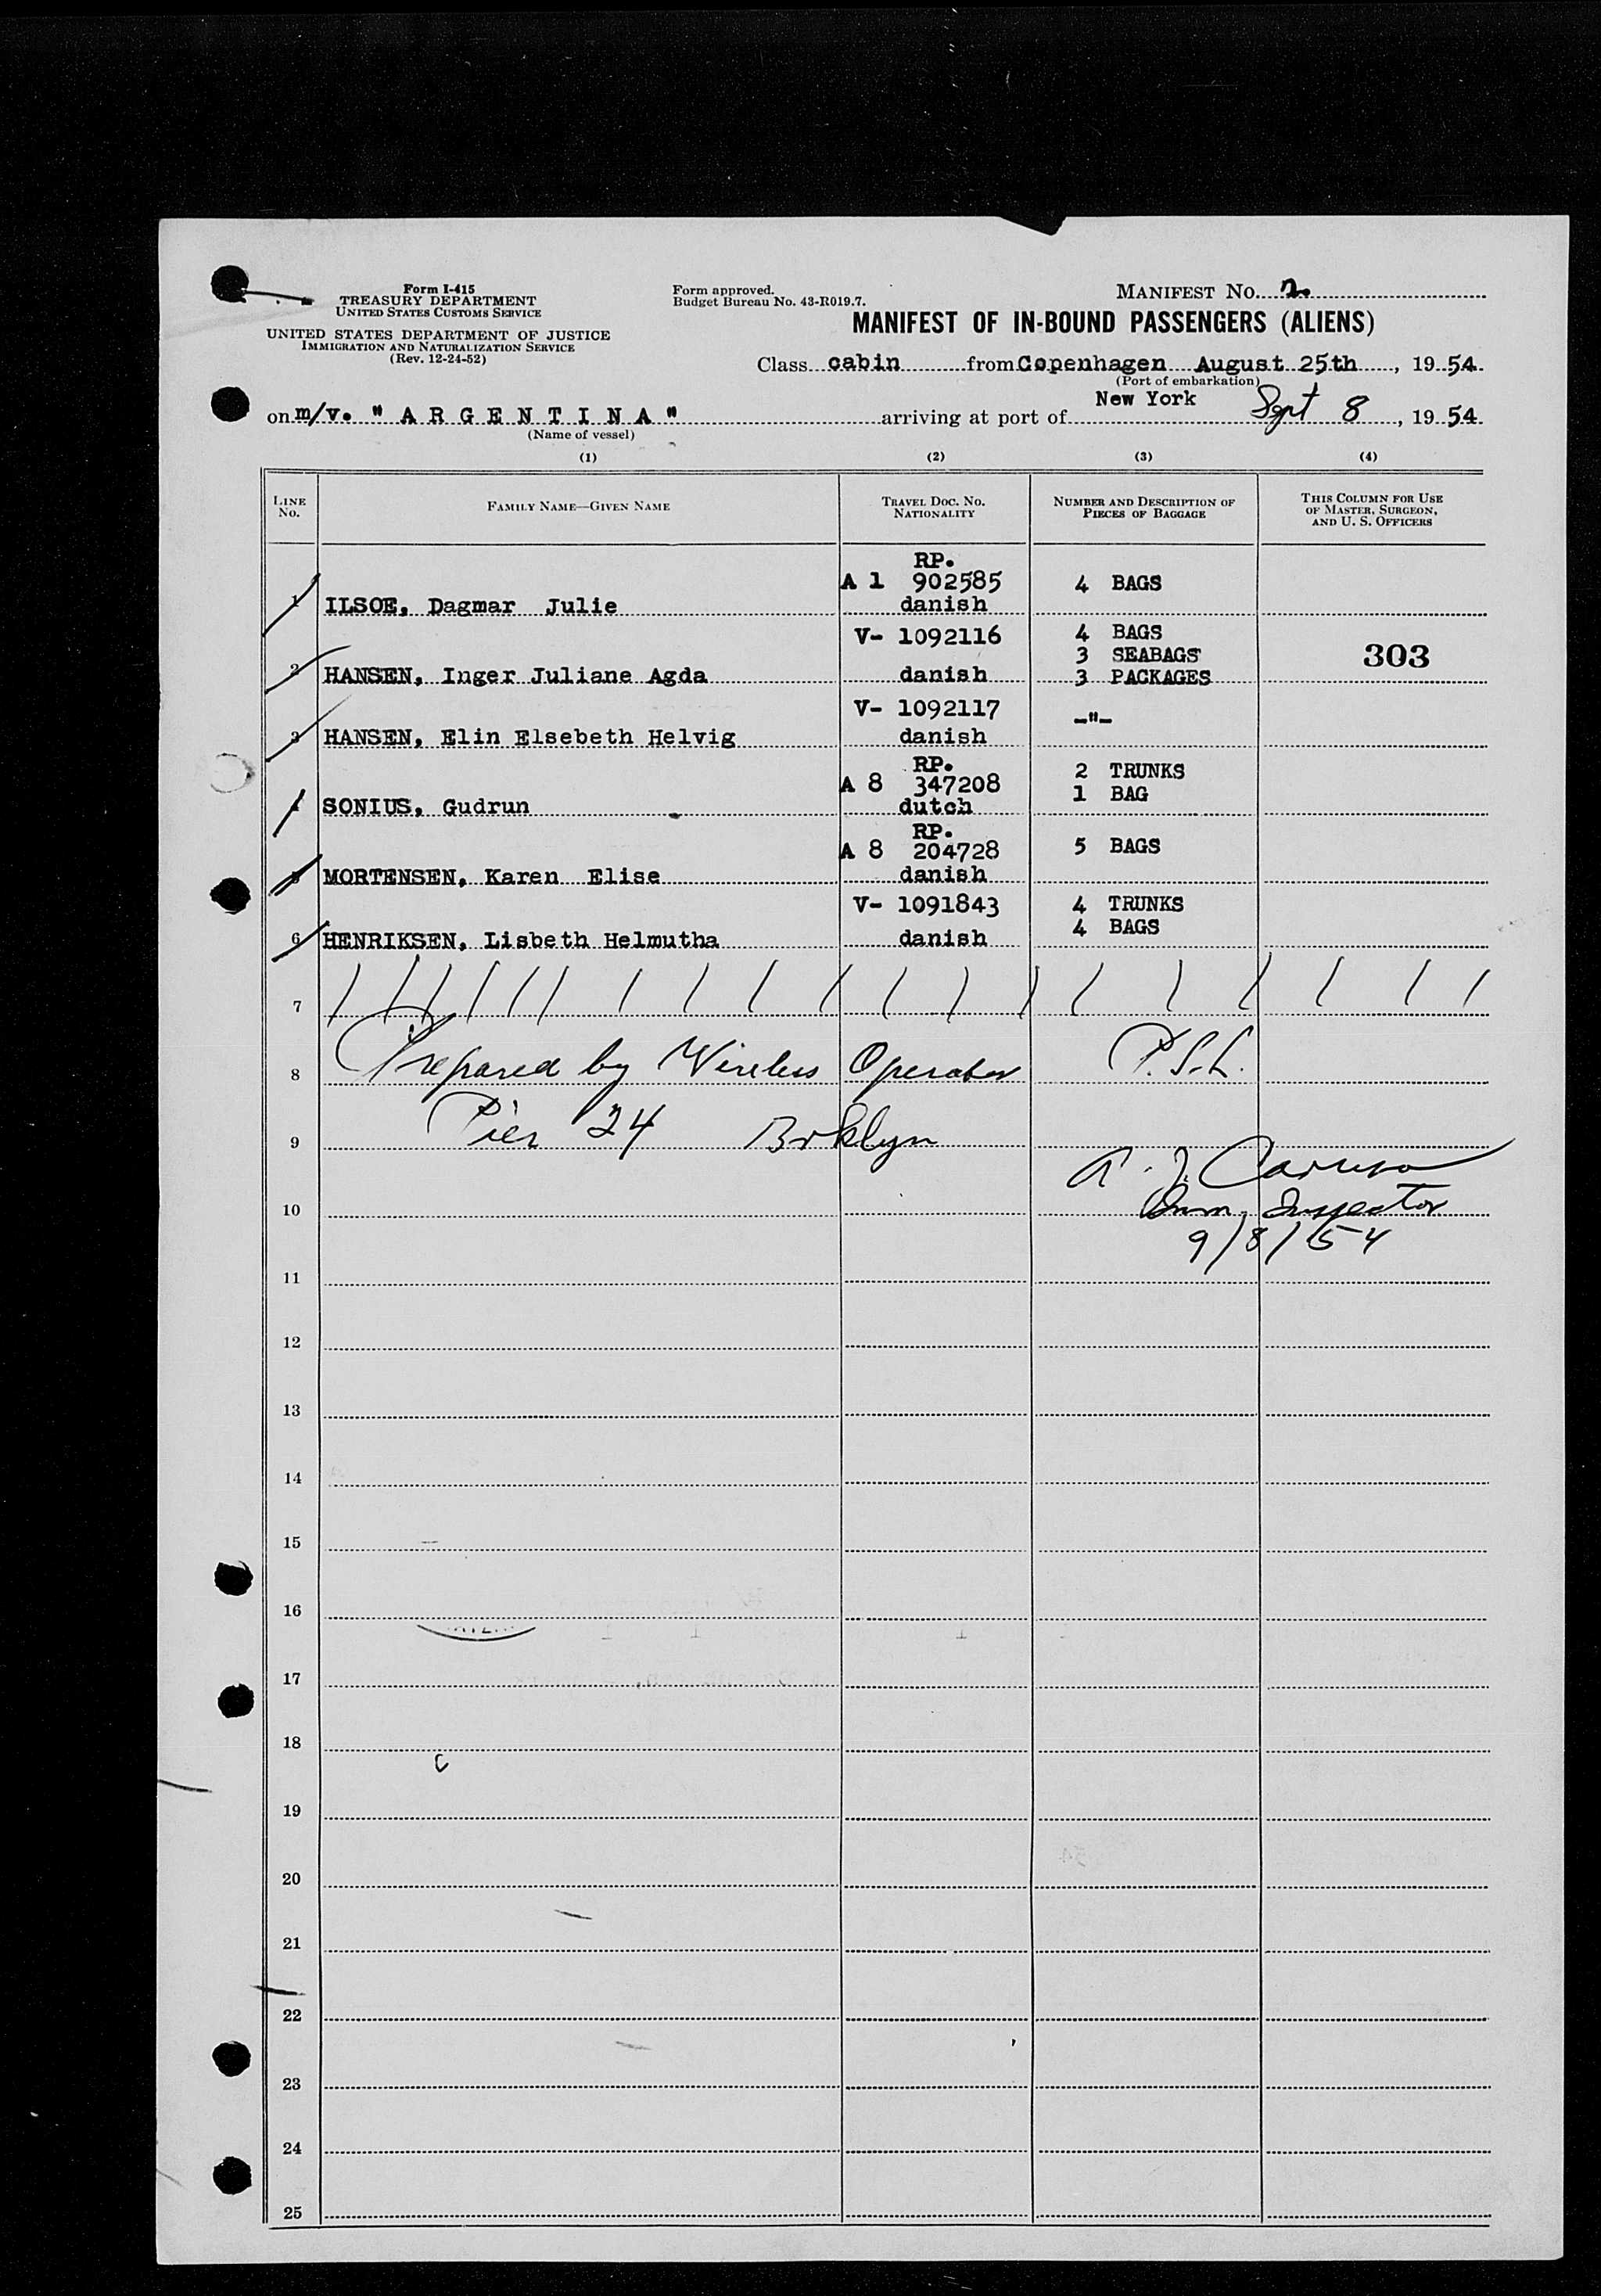 Form I-415
TREASURY DEPARTMENT
UNITED STATES CUSTOMS SERVICE
UNITED STATES DEPARTMENT OF JUSTICE
IMMIGRATION AND NATURALIZATION SERVICE
(Rev. 12-24-52)
Form approved.
Budget Bureau No. 43-R019.7.
MANIFEST NO. 2
MANIFEST OF IN-BOUND PASSENGERS (ALIENS)
Class cabin from Copenhagen August 25th, 1954
(Port of embarkation)
on m/v. "ARGENTINA" arriving at port of New York Sept 8, 1954
(Name of vessel)
(1) (2) (3) (4)
LINE NO. FAMILY NAME—GIVEN NAME TRAVEL DOC. NO. NATIONALITY NUMBER AND DESCRIPTION OF PIECES OF BAGGAGE THIS COLUMN FOR USE OF MASTER, SURGEON, AND U. S. OFFICERS
RP.
A 1 902585 4 BAGS
1 ILSOE, Dagmar Julie danish
V- 1092116 4 BAGS
3 SEABAGS 303
2 HANSEN, Inger Juliane Agda danish 3 PACKAGES
V- 1092117 -"-
3 HANSEN, Elin Elsebeth Helvig danish
RP. 2 TRUNKS
A 8 347208 1 BAG
4 SONIUS, Gudrun dutch
RP.
A 8 204728 5 BAGS
5 MORTENSEN, Karen Elise danish
V- 1091843 4 TRUNKS
4 BAGS
6 HENRIKSEN, Lisbeth Helmutha danish
7
8 Prepared by Wireless Operator P.S.L.
9 Pier 24 Brklyn
A. J. Caruso
10 Imm. Inspector
9/8/54
11
12
13
14
15
16
17
18
19
20
21
22
23
24
25